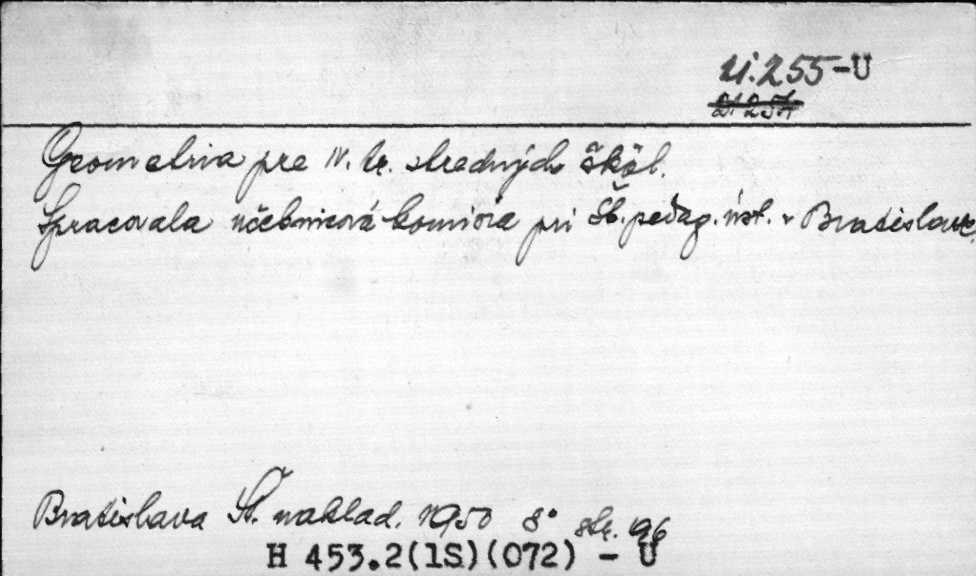 21.255-U
21 254
Geometria pre IV. tr. stredných škôl.
Spracovala učebnicová komisia pri Št. pedag. úst. v Bratislave
Bratislava Št. naklad. 1950 8° str. 196
H 453.2(1S)(072) - U